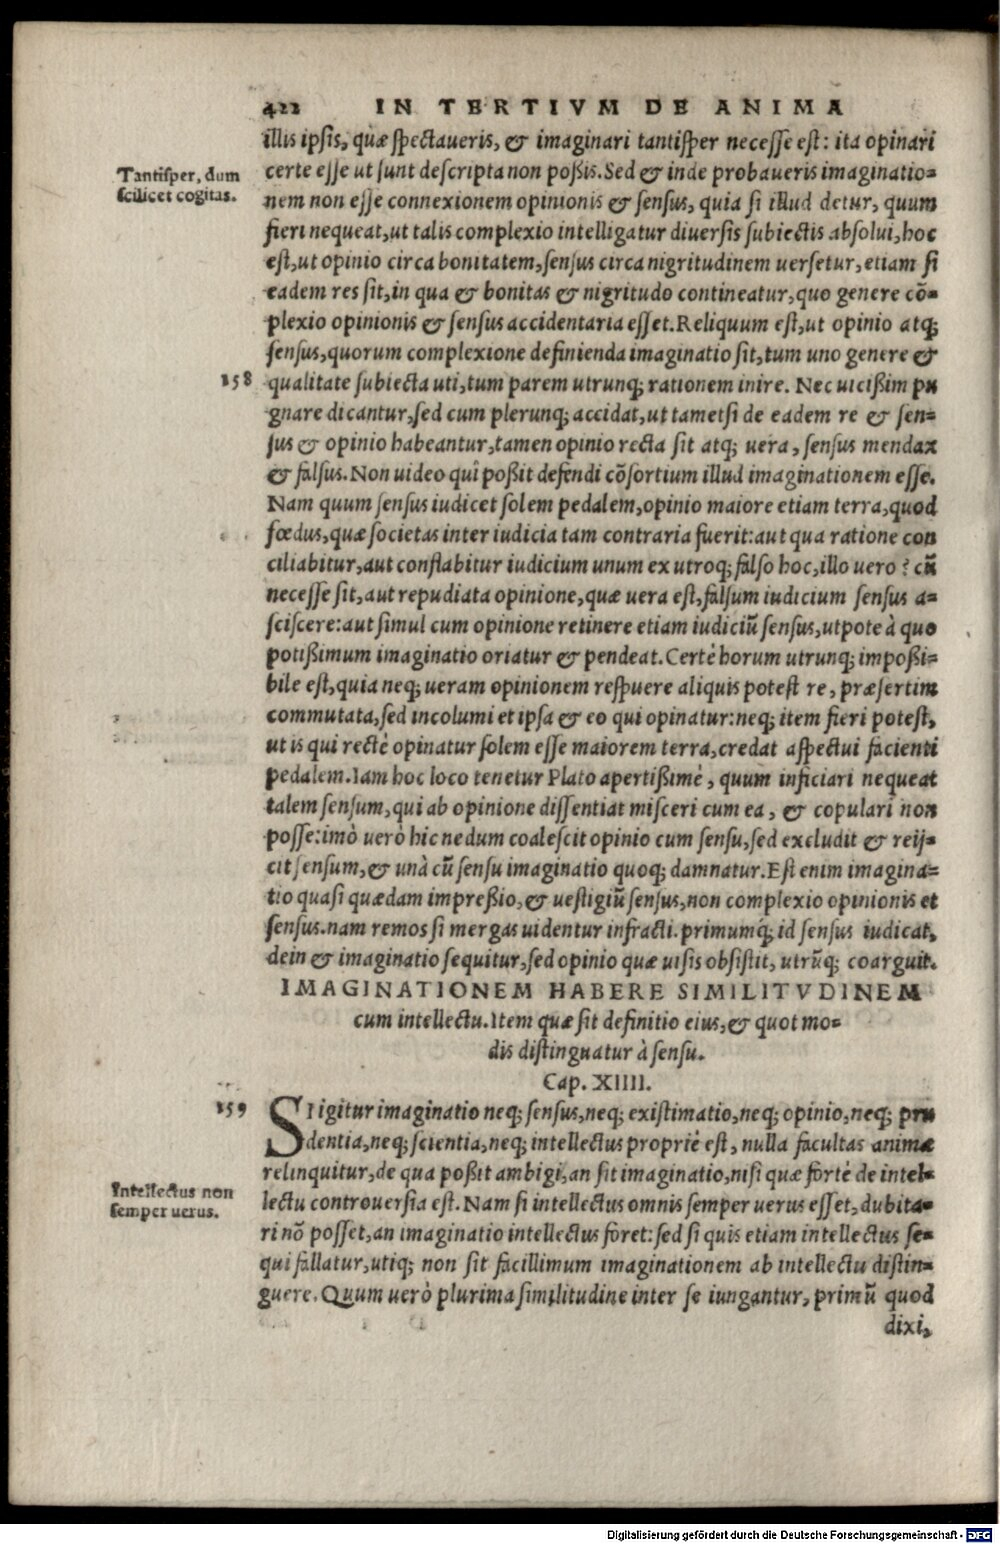 422 IN TERTIVM DE ANIMA
illis ipsis, quæ spectaueris, & imaginari tantisper necesse est: ita opinari
Tantisper, dum
scilicet cogitas.
certe esse ut sunt descripta non poßis. Sed & inde probaueris imaginatio-
nem non esse connexionem opinionis & sensus, quia si illud detur, quum
fieri nequeat, ut talis complexio intelligatur diuersis subiectis absolui, hoc
est, ut opinio circa bonitatem, sensus circa nigritudinem uersetur, etiam si
eadem res sit, in qua & bonitas & nigritudo contineatur, quo genere cõ-
plexio opinionis & sensus accidentaria esset. Reliquum est, ut opinio atq;
sensus, quorum complexione definienda imaginatio sit, tum uno genere &
158 qualitate subiecta uti, tum parem utrunq; rationem inire. Nec uicißim pu
gnare dicantur, sed cum plerunq; accidat, ut tametsi de eadem re & sen-
sus & opinio habeantur, tamen opinio recta sit atq; uera, sensus mendax
& falsus. Non uideo quî poßit defendi cõsortium illud imaginationem esse.
Nam quum sensus iudicet solem pedalem, opinio maiore etiam terra, quod
fœdus, quæ societas inter iudicia tam contraria fuerit: aut qua ratione con
ciliabitur, aut conflabitur iudicium unum ex utroq; falso hoc, illo uero? cũ
necesse sit, aut repudiata opinione, quæ uera est, falsum iudicium sensus a-
sciscere: aut simul cum opinione retinere etiam iudiciũ sensus, utpote à quo
potißimum imaginatio oriatur & pendeat. Certè horum utrunq; impoßi-
bile est, quia neq; ueram opinionem respuere aliquis potest re, præsertim
commutata, sed incolumi et ipsa & eo qui opinatur: neq; item fieri potest,
ut is qui rectè opinatur solem esse maiorem terra, credat aspectui facienti
pedalem. Iam hoc loco tenetur Plato apertißimè, quum inficiari nequeat
talem sensum, qui ab opinione dissentiat misceri cum ea, & copulari non
posse: imò uerò hic nedum coalescit opinio cum sensu, sed excludit & reij-
cit sensum, & unà cũ sensu imaginatio quoq; damnatur. Est enim imagina-
tio quasi quædam impreßio, & uestigiũ sensus, non complexio opinionis et
sensus. nam remos si mergas uidentur infracti. primumq́; id sensus iudicat,
dein & imaginatio sequitur, sed opinio quæ uisis obsistit, utrũq; coarguit.
IMAGINATIONEM HABERE SIMILITVDINEM
cum intellectu. Item quæ sit definitio eius, & quot mo-
dis distinguatur à sensu.
Cap. XIIII.
159 SI igitur imaginatio neq; sensus, neq; existimatio, neq; opinio, neq; pru
dentia, neq; scientia, neq; intellectus propriè est, nulla facultas animæ
relinquitur, de qua poßit ambigi, an sit imaginatio, nisi quæ fortè de intel-
Intellectus non
semper uerus.
lectu controuersia est. Nam si intellectus omnis semper uerus esset, dubita-
ri nõ posset, an imaginatio intellectus foret: sed si quis etiam intellectus se-
qui fallatur, utiq; non sit facillimum imaginationem ab intellectu distin-
guere. Quum uerò plurima similitudine inter se iungantur, primũ quod
dixi,
Digitalisierung gefördert durch die Deutsche Forschungsgemeinschaft - DFG